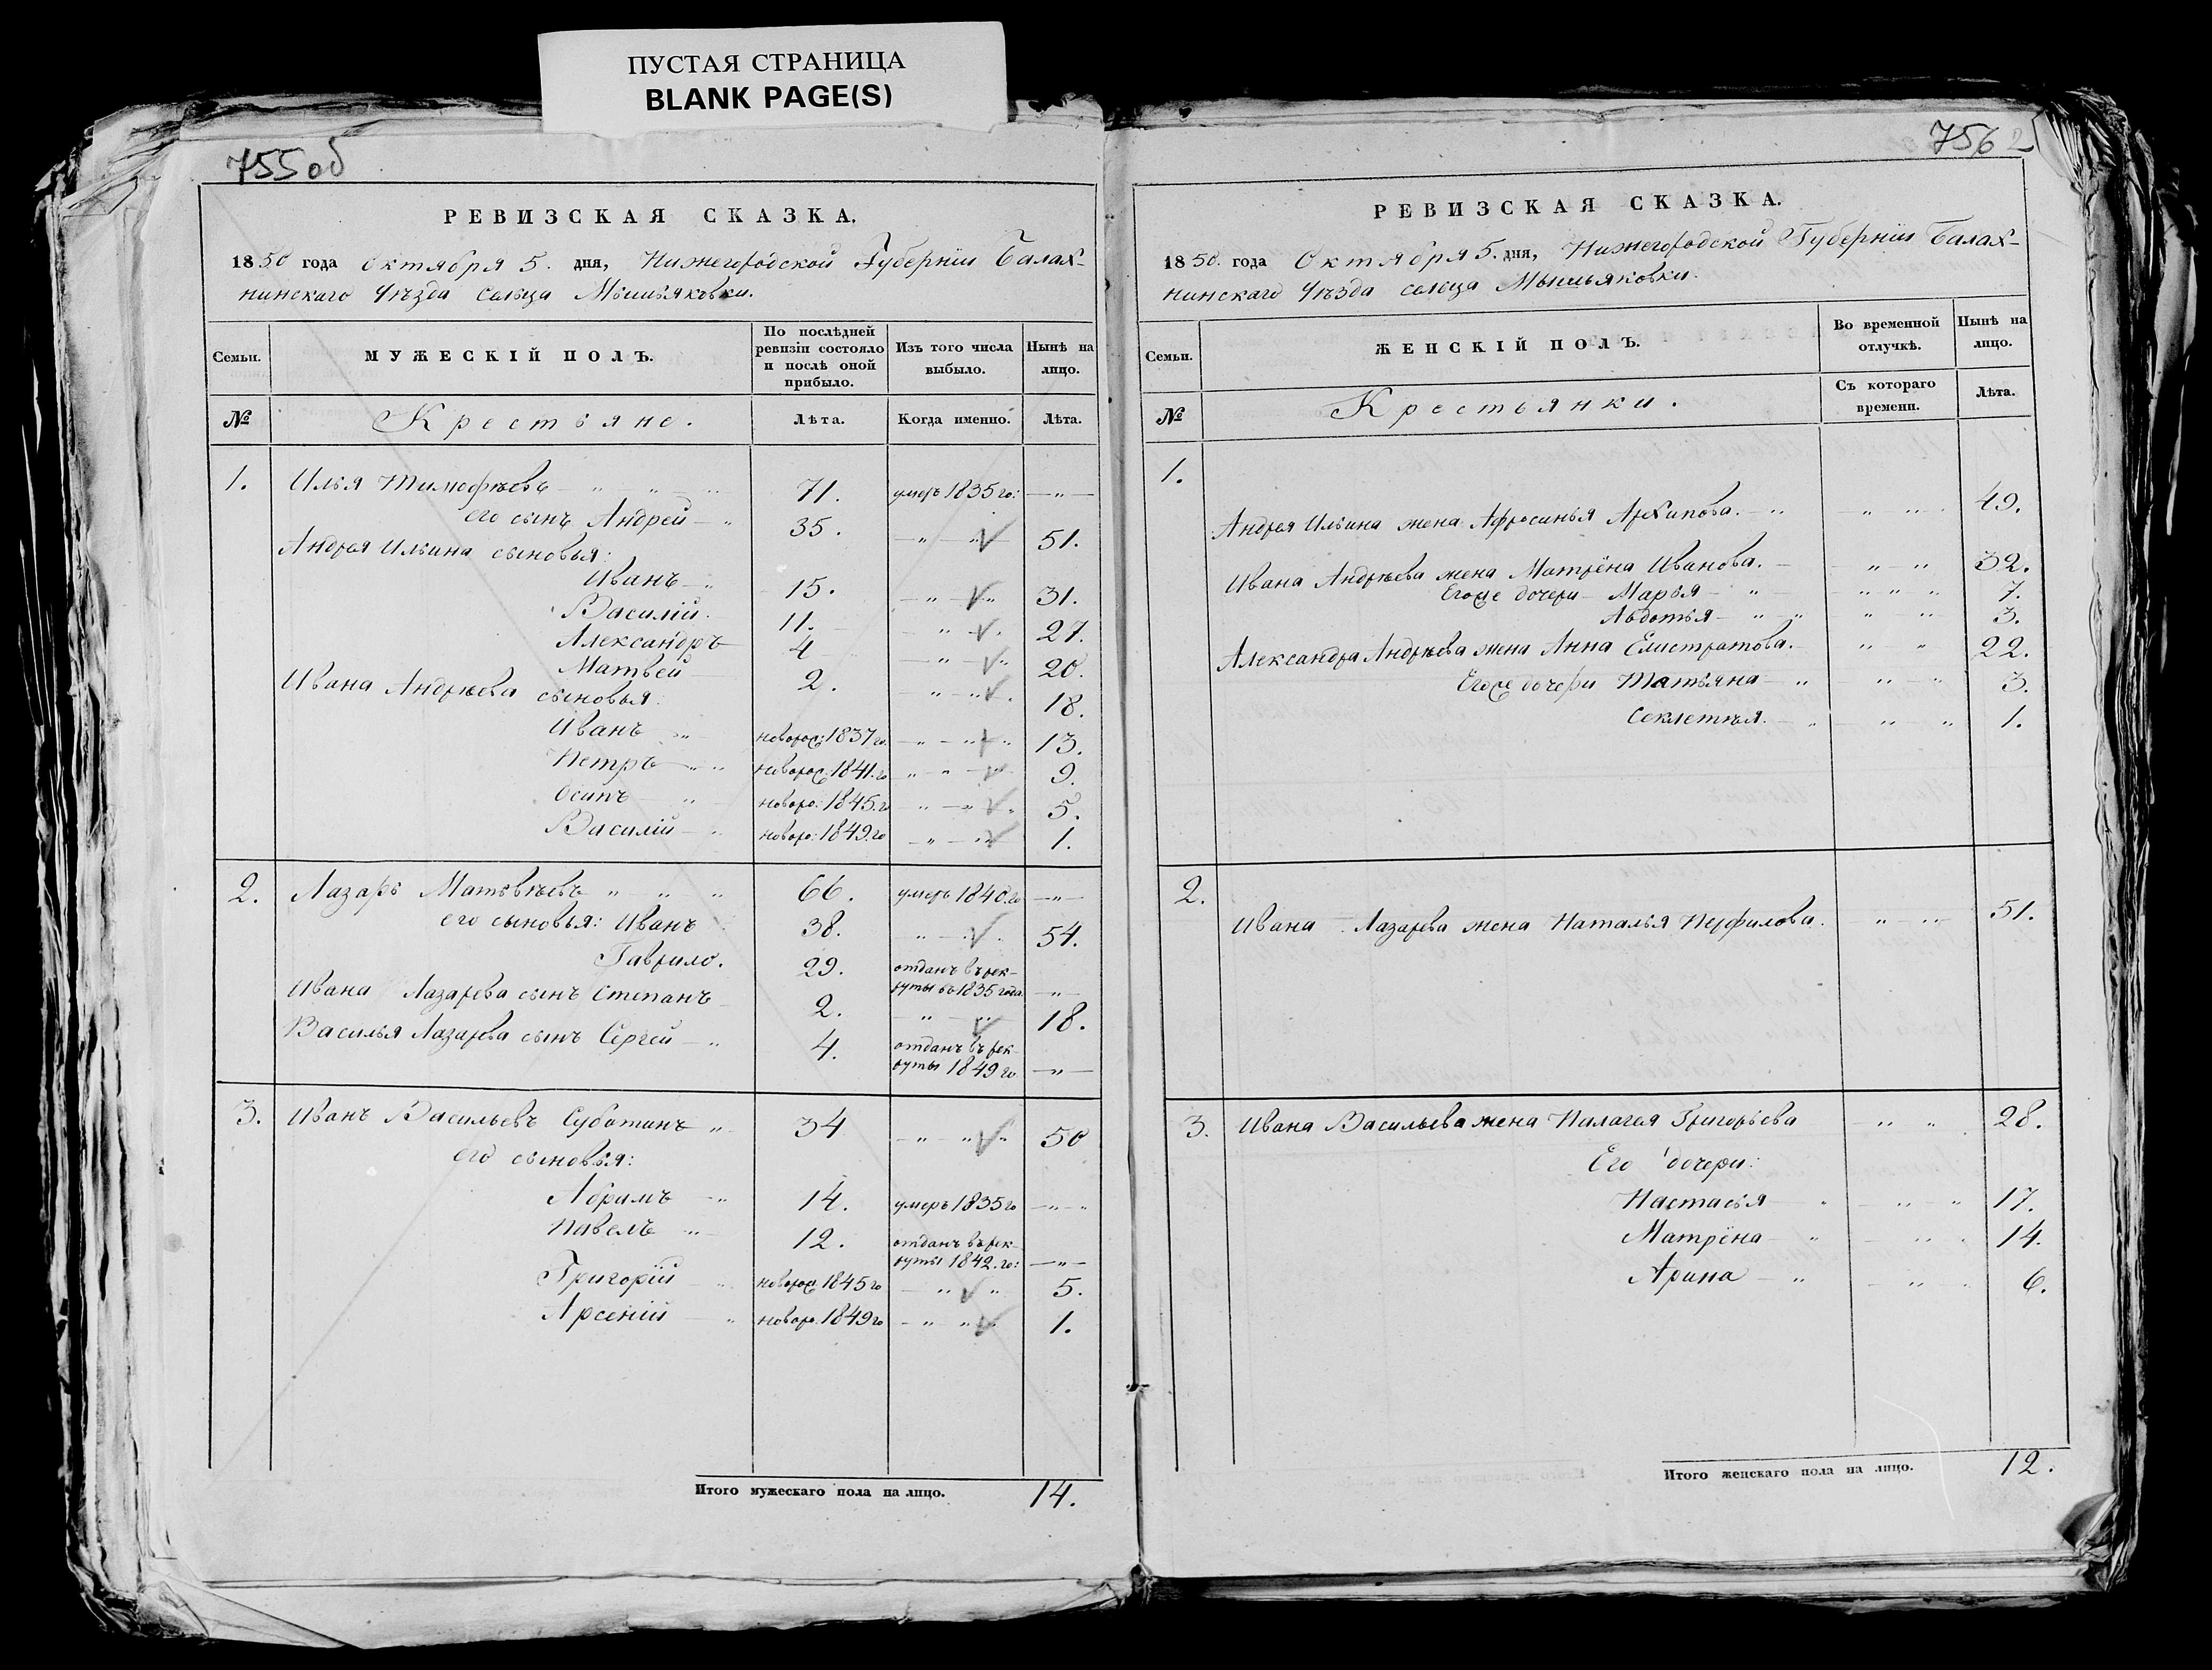 ПУСТАЯ СТРАНИЦА
BLANK PAGE(S)
755об
РЕВИЗСКАЯ СКАЗКА.
1850 года Октября 5. дня, Нижегородской Губерніи Балах-
нинскаго Уѣзда сельца Мышьяковки.
Семьи. МУЖЕСКІЙ ПОЛЪ. По послѣдней ревизіи состояло и послѣ оной прибыло. Изъ того числа выбыло. Нынѣ на лицо.
№ Крестьяне. Лѣта. Когда именно. Лѣта.
1. Илья Тимофѣевъ 71. умеръ 1835 го: — " —
его сынъ Андрей 35. — " — 51.
Андрея Ильина сыновья:
Иванъ 15. — " — 31.
Василій. 11. — " — 27.
Александръ 4 — " — 20.
Матвей 2. " — " 18.
Ивана Андрѣева сыновья:
Иванъ новорож: 1837 го. — " — 13.
Петръ новорож: 1841. го " — " 9.
Осипъ новоро: 1845. го " — " 5.
Василій новоро: 1849. го — " — 1.
2. Лазарь Матвѣевъ 66. умеръ 1840. го — " —
его сыновья: Иванъ 38. " — 54.
Гаврило. 29. отданъ въ рек-
руты въ 1835 года — " —
Ивана Лазарева сынъ Степанъ 2. — " — 18.
Василья Лазарева сынъ Сергей 4. отданъ въ рек-
руты 1849 го — " —
3. Иванъ Васильевъ Суботинъ 34 — " — 50
его сыновья:
Абрамъ 14. умеръ 1835 го — " —
Павелъ 12. отданъ въ рек-
руты 1842. го: — " —
Григорій новорож 1845 го — " — 5.
Арсеній новоро. 1849 го — " — 1.
Итого мужескаго пола на лицо. 14.
756 2
РЕВИЗСКАЯ СКАЗКА.
1850. года Октября 5. дня, Нижегородской Губерніи Балах-
нинскаго Уѣзда сельца Мышьяковки.
Семьи. ЖЕНСКІЙ ПОЛЪ. Во временной отлучкѣ. Нынѣ на лицо.
№ Крестьянки. Съ котораго времени. Лѣта.
1.
Андрея Ильина жена Афросинья Архипова. — " — 49.
Ивана Андрѣева жена Матрёна Иванова. — " — 32.
Егоже дочери Марья — " — 7.
Авдотья — " — 3.
Александра Андрѣева жена Анна Елистратова. " " 22.
Егоже дочери Татьяна — " — 3.
Секлетѣя. — " — 1.
2.
Ивана Лазарева жена Наталья Перфилова. " — " 51.
3. Ивана Васильева жена Палагея Григорьева — " — 28.
Его дочери:
Настасья — " — 17.
Матрёна — " — 14.
Арина — " — 6.
Итого женскаго пола на лицо. 12.